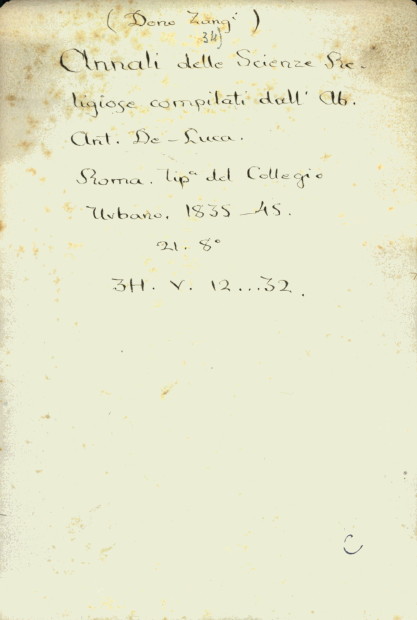 ( Dono Zangi )
34)
Annali delle Scienze Re-
ligiose compilati dall' Ab.
Ant. De-Luca.
Roma. Tipª del Collegio
Urbano. 1835-45.
21. 8°
3H. V. 12...32.
C